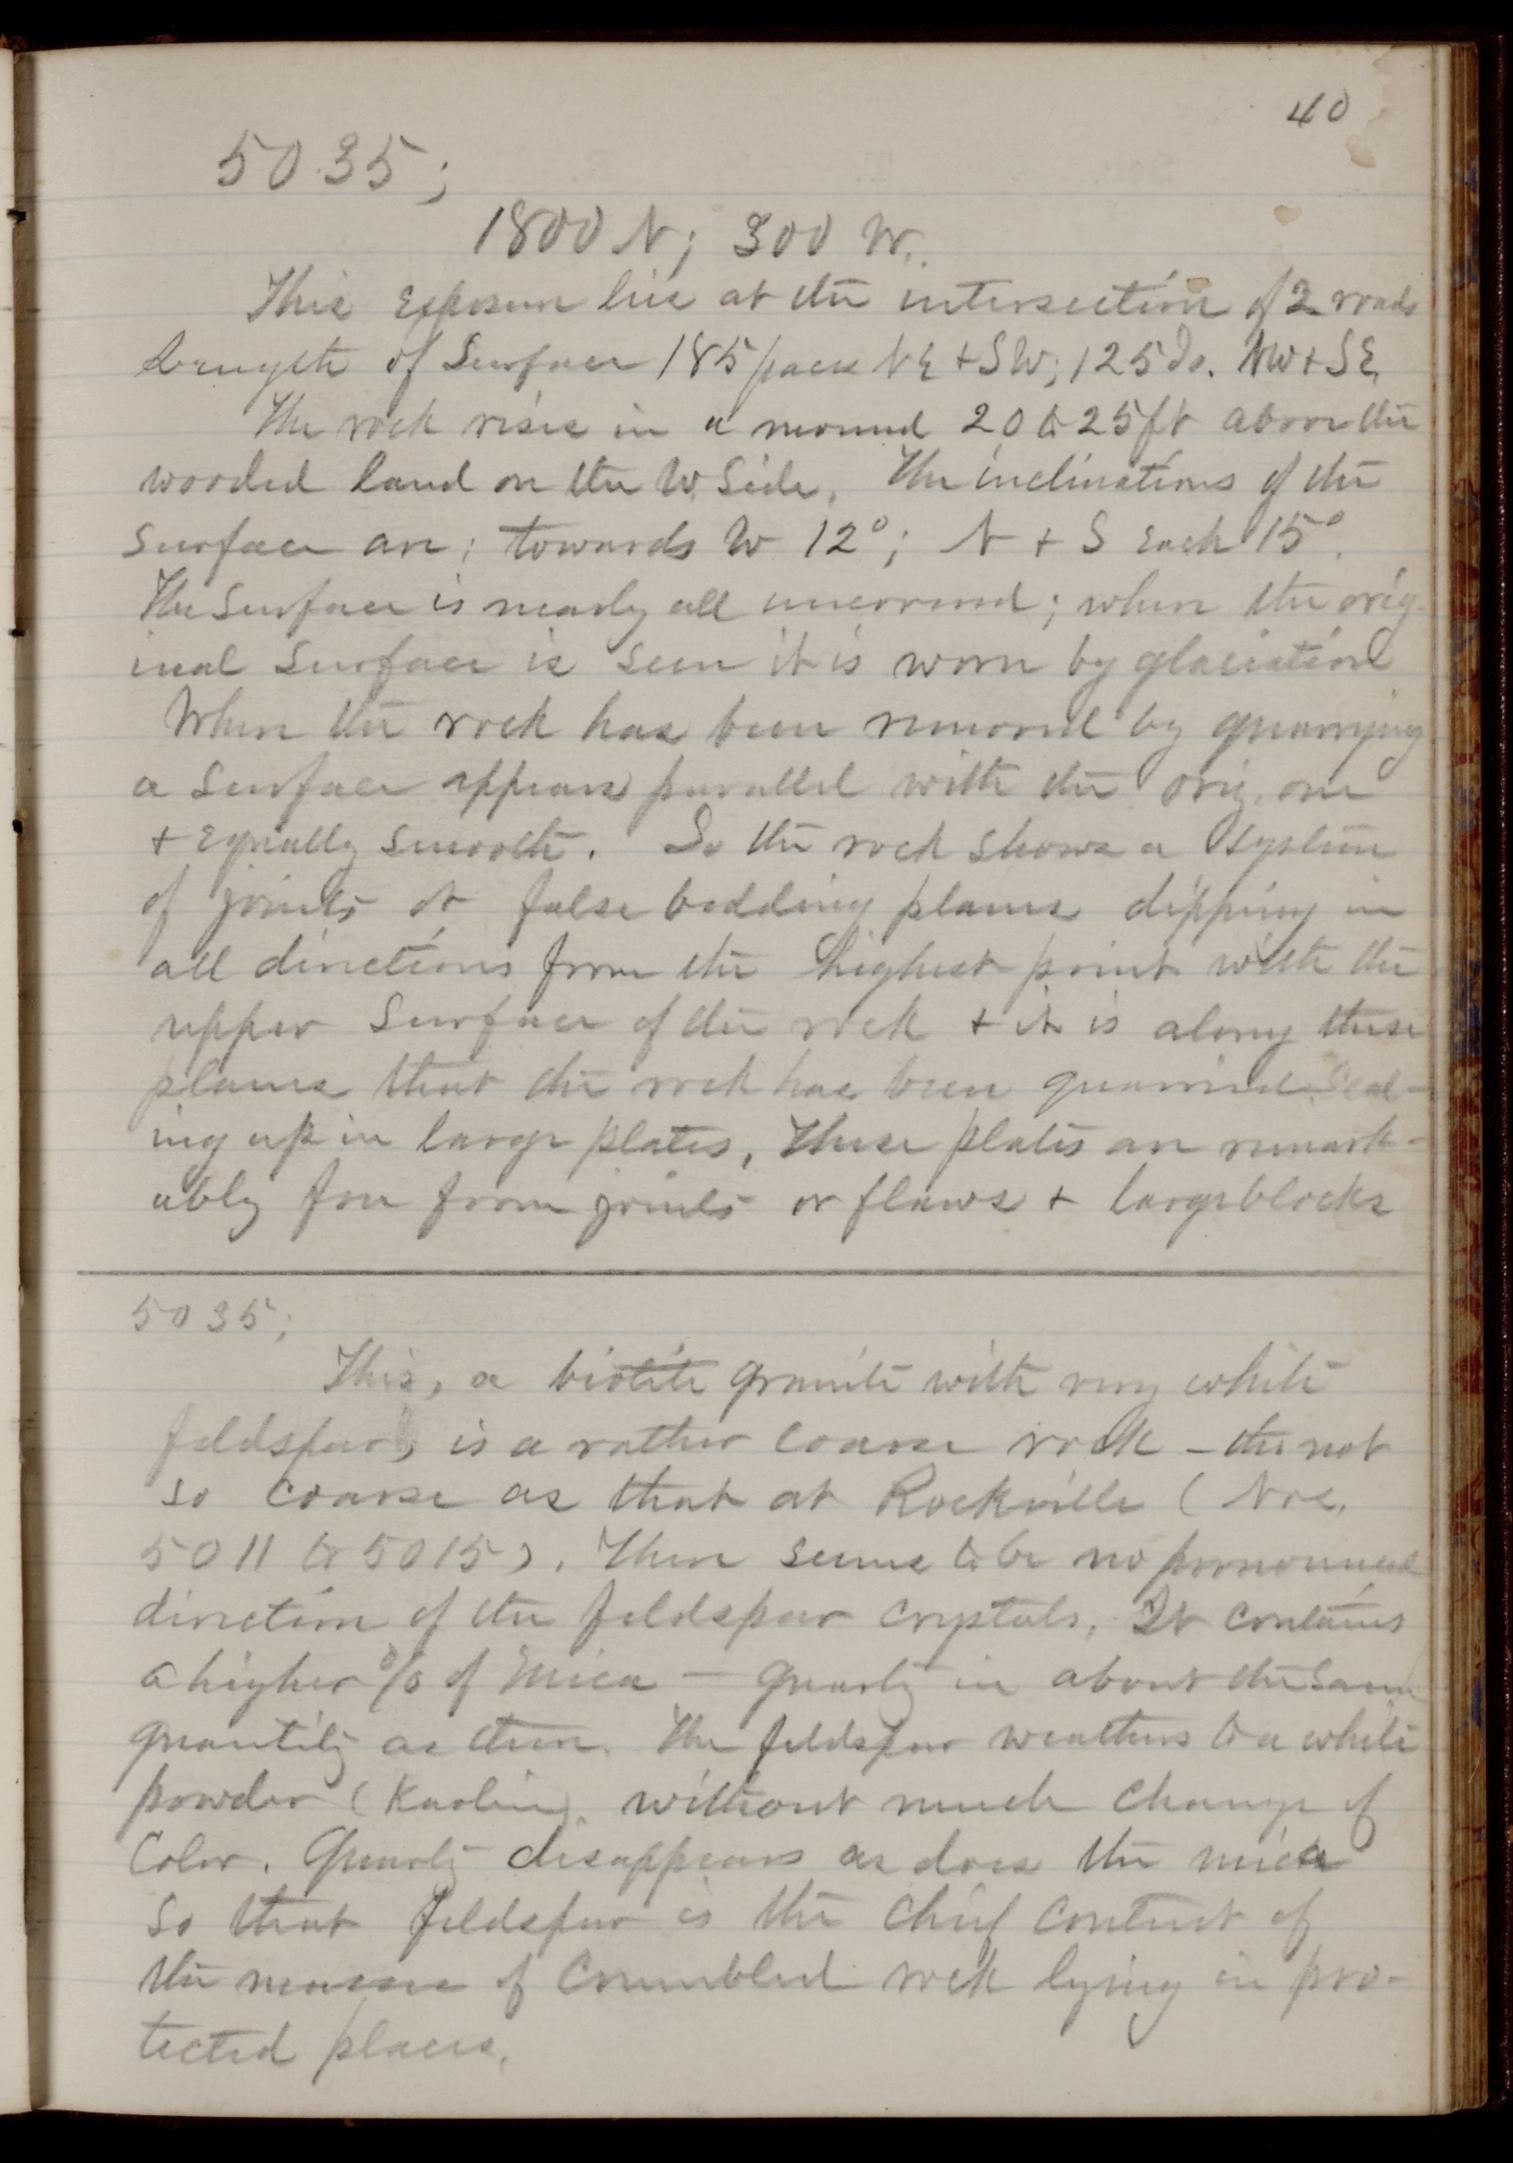 40
5035;
1800 N; 300 W.
This Exposure lies at the intersection of 2 roads
Length of Surface 185 paces NE + SW; 125 do. NW + SE
The rock rises in a mound 20 to 25 ft above the
wooded land on the W. Side. The inclinations of the
Surface are; towards W 12°; N + S Each 15°.
The Surface is nearly all uncovered; where the orig-
inal Surface is seen it is worn by glaciation
Where the rock has been removed by quarrying
a Surface appears parallel with the orig. one
+ Equally smooth. So the rock shows a System
of joints or false bedding planes dipping in
all directions from the highest point with the
upper Surface of the rock + it is along these
planes that the rock has been quarried Scal-
ing up in large plates, These plates are remark-
ably free from joints or flaws + large blocks
5035;
This, a biotite granite with very white
feldspar, is a rather coarse rock – tho not
so coarse as that at Rockville (Nos.
5011 to 5015). There seems to be no pronounced
direction of the feldspar crystals. It contains
a higher % of Mica – Quartz in about the Same
quantity as there. The feldspar weathers to a white
powder (Kaolin). without much change of
Color. Quartz disappears as does the mica
So that feldspar is the chief content of
the masses of Crumbled rock lying in pro-
tected places.